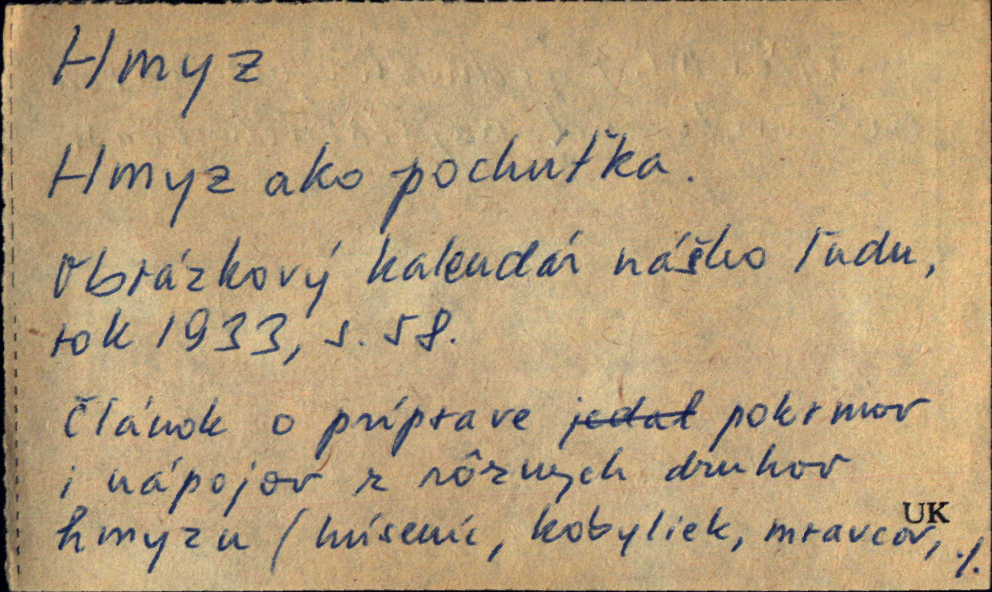 Hmyz
Hmyz ako pochúťka.
Obrázkový kalendár nášho ľudu,
rok 1933, s. 58.
Článok o príprave jedál pokrmov
i nápojov z rôznych druhov
hmyzu (húseníc, kobyliek, mravcov,
UK
./.